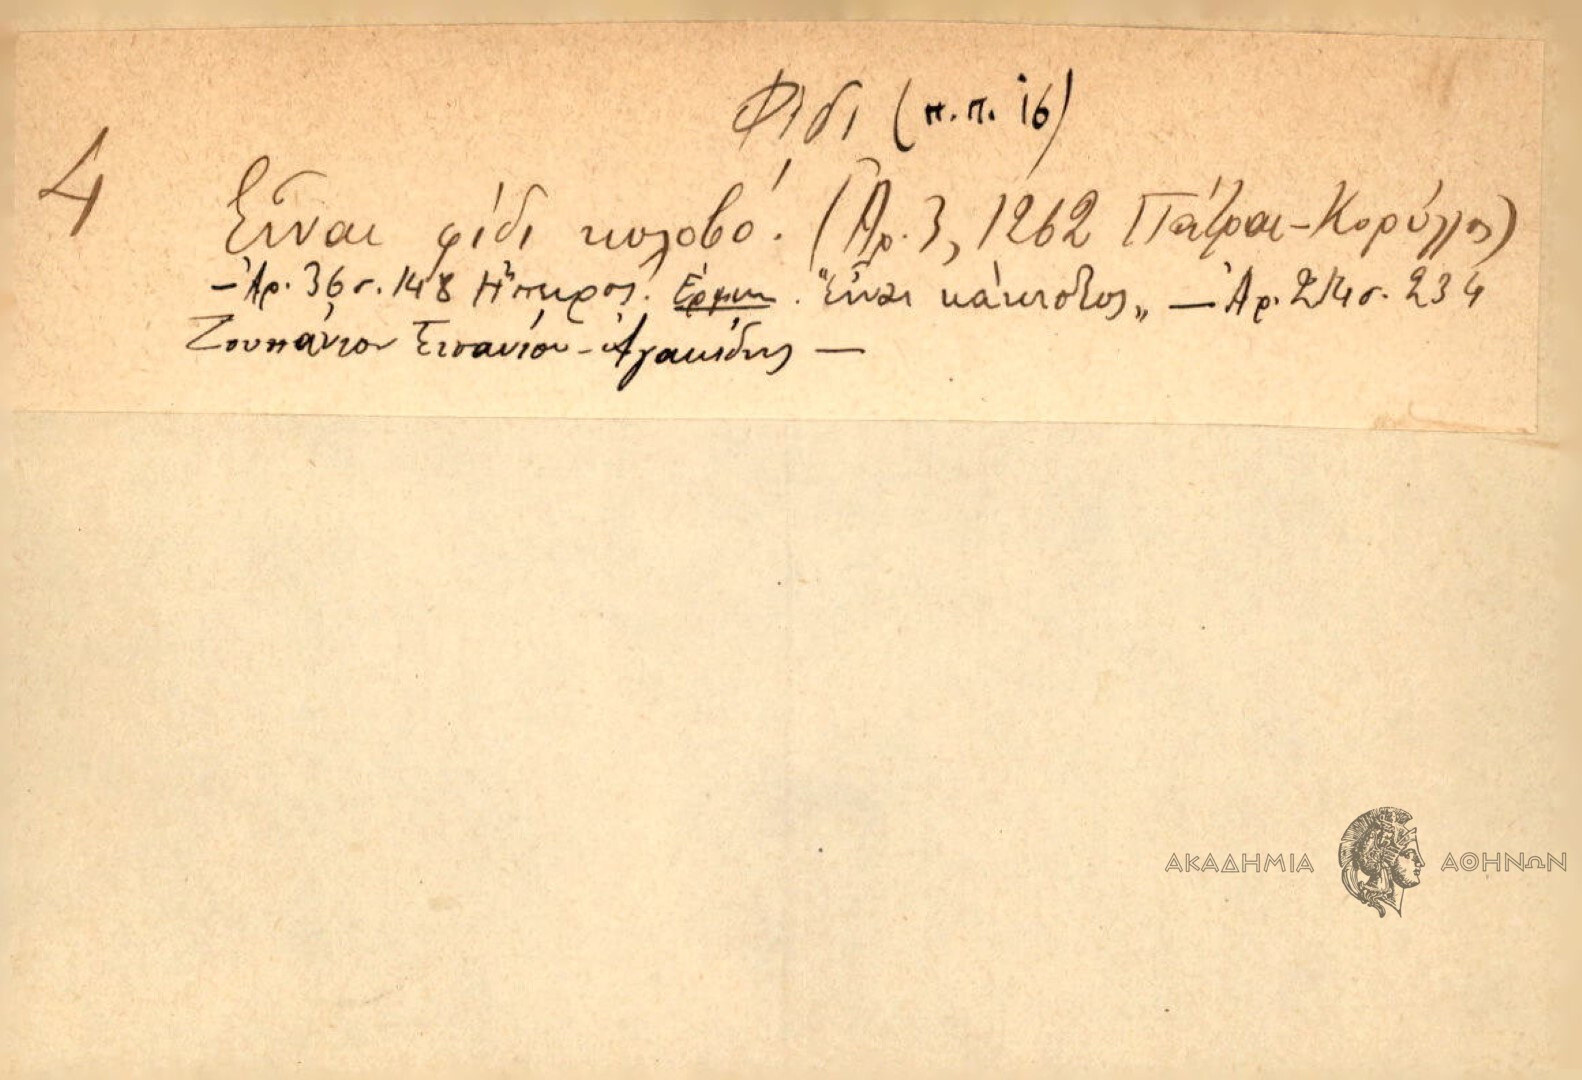 Φίδι (π.π. 16)
4
Εἶναι φίδι κολοβό. (Ἀρ. 3, 1262 Πάτραι-Κορύλλος)
— Ἀρ. 36 σ. 148 Ἤπειρος. Ἑρμην. "Εἶναι κάκιστος„ — Ἀρ. 214 σ. 234
Ζουπάνιον Σισανίου - Ἀγακίδης —
ΑΚΑΔΗΜΙΑ ΑΘΗΝΩΝ